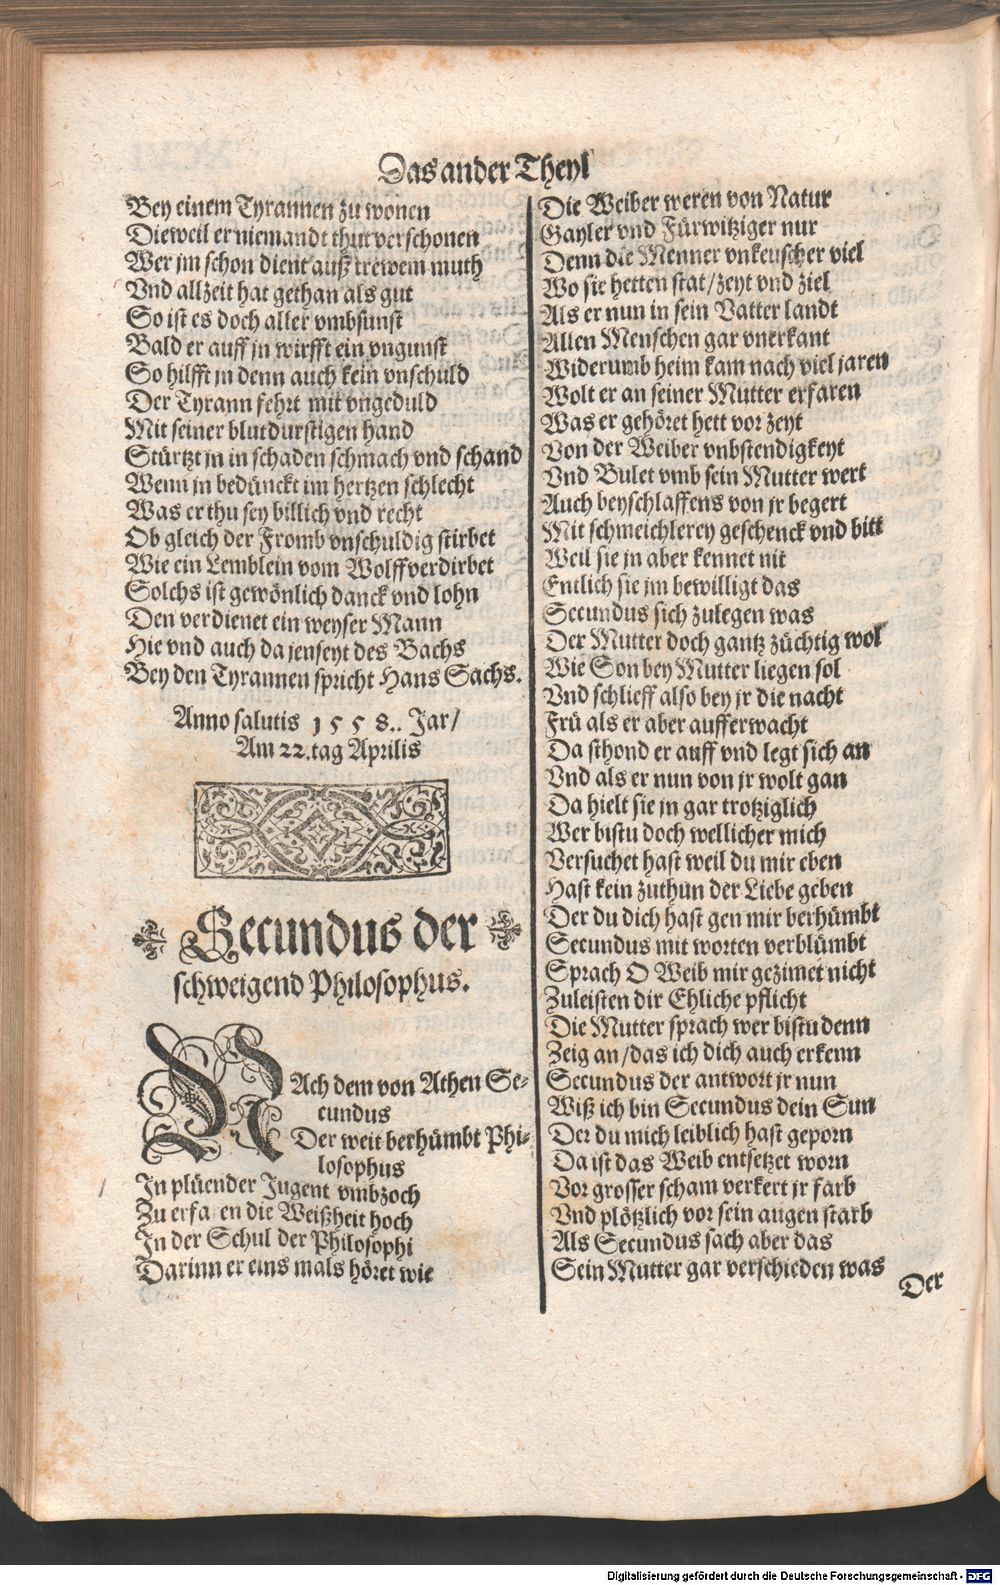 Das ander Theyl
Bey einem Tyrannen zu wonen
Dieweil er niemandt thut verschonen
Wer jm schon dient auß trewem muth
Vnd allzeit hat gethan als gut
So ist es doch aller vmbsunst
Bald er auff jn wirfft ein vngunst
So hilfft jn denn auch kein vnschuld
Der Tyrann fehrt mit vngeduld
Mit seiner blutdurstigen hand
Stürtzt jn in schaden schmach vnd schand
Wenn jn bedünckt im hertzen schlecht
Was er thu sey billich vnd recht
Ob gleich der Fromb vnschuldig stirbet
Wie ein Lemblein vom Wolff verdirbet
Solchs ist gewönlich danck vnd lohn
Den verdienet ein weyser Mann
Hie vnd auch da jenseyt des Bachs
Bey den Tyrannen spricht Hans Sachs.
Anno salutis 1558.. Jar/
Am 22. tag Aprilis
Secundus der
schweigend Philosophus.
NAch dem von Athen Se-
cundus
Der weit berhümbt Phi-
losophus
In plüender Jugent vmbzoch
Zu erfa en die Weißheit hoch
In der Schul der Philosophi
Darinn er eins mals höret wie
Die Weiber weren von Natur
Gayler vnd Fürwitziger nur
Denn die Menner vnkeuscher viel
Wo sie hetten stat/zeyt vnd ziel
Als er nun in sein Vatter landt
Allen Menschen gar vnerkant
Widerumb heim kam nach viel jaren
Wolt er an seiner Mutter erfaren
Was er gehöret hett vor zeyt
Von der Weiber vnbstendigkeyt
Vnd Bulet vmb sein Mutter wert
Auch beyschlaffens von jr begert
Mit schmeichlerey geschenck vnd bitt
Weil sie jn aber kennet nit
Entlich sie jm bewilligt das
Secundus sich zulegen was
Der Mutter doch gantz züchtig wol
Wie Son bey Mutter liegen sol
Vnd schlieff also bey jr die nacht
Frü als er aber aufferwacht
Da sthond er auff vnd legt sich an
Vnd als er nun von jr wolt gan
Da hielt sie jn gar trotziglich
Wer bistu doch wellicher mich
Versuchet hast weil du mir eben
Hast kein zuthun der Liebe geben
Der du dich hast gen mir berhümbt
Secundus mit worten verblümbt
Sprach O Weib mir gezimet nicht
Zuleisten dir Ehliche pflicht
Die Mutter sprach wer bistu denn
Zeig an/das ich dich auch erkenn
Secundus der antwort jr nun
Wiß ich bin Secundus dein Sun
Der du mich leiblich hast geporn
Da ist das Weib entsetzet worn
Vor grosser scham verkert jr farb
Vnd plötzlich vor sein augen starb
Als Secundus sach aber das
Sein Mutter gar verschieden was
Der
Digitalisierung gefördert durch die Deutsche Forschungsgemeinschaft - DFG